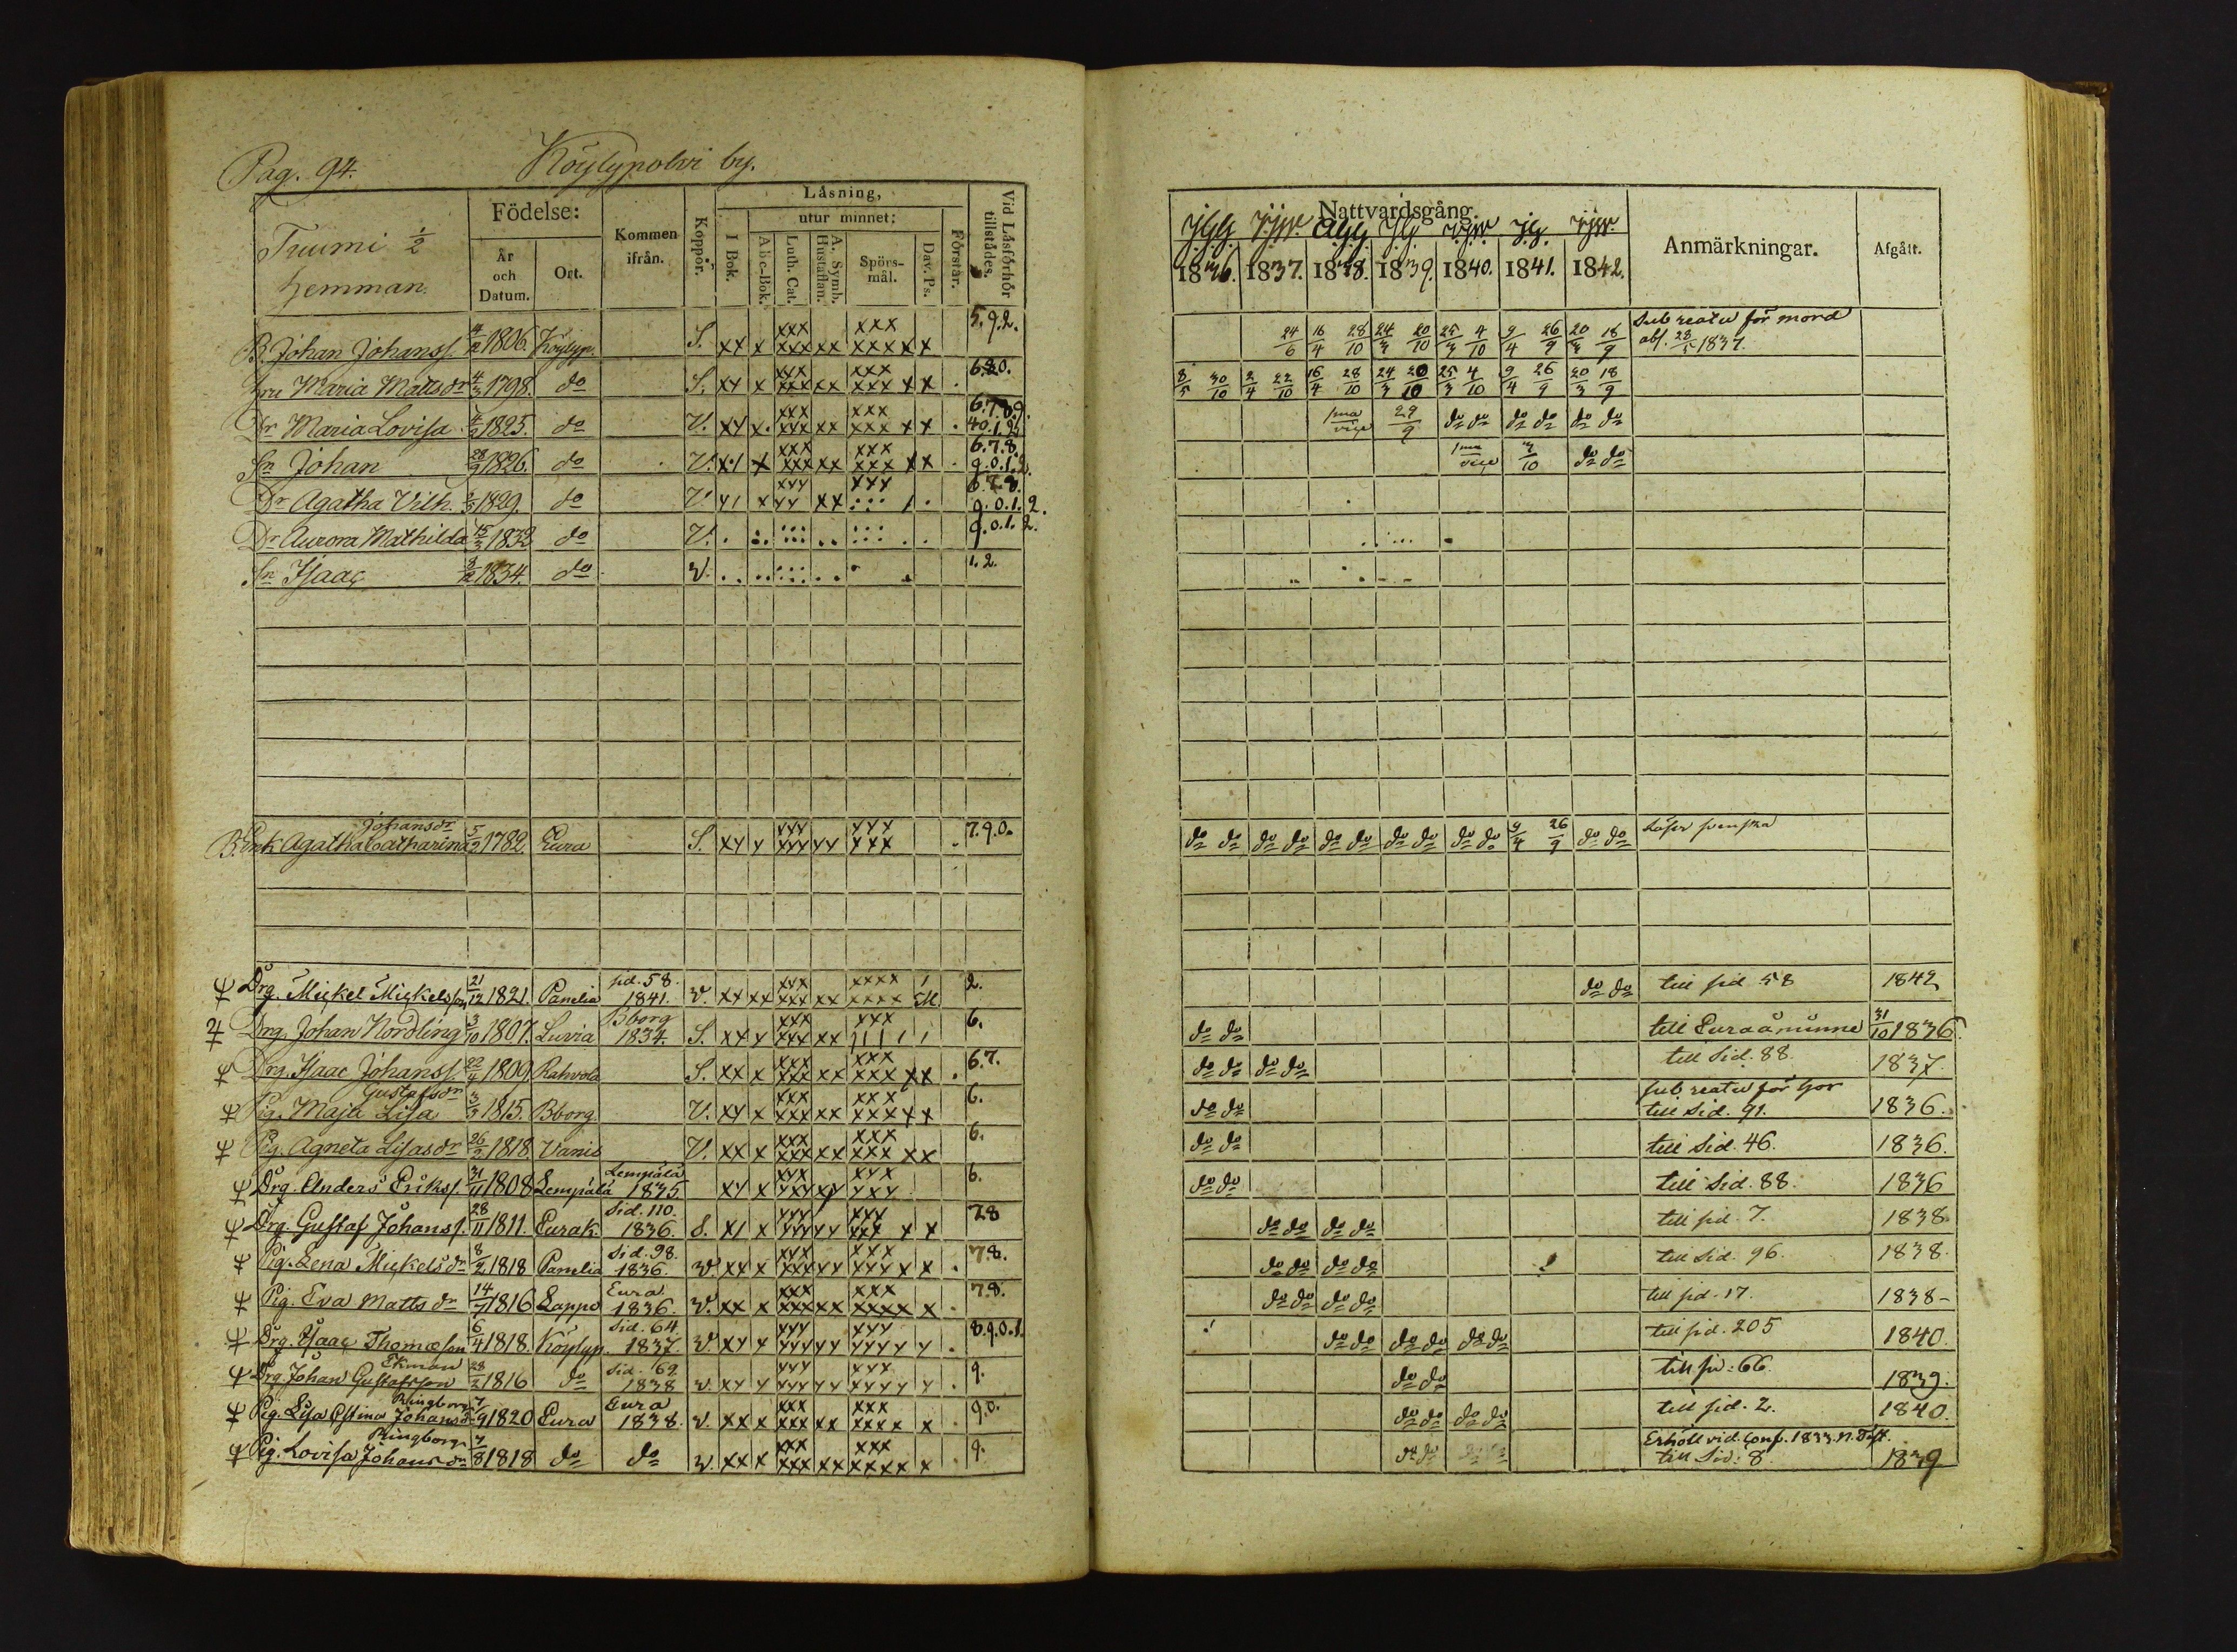 Pag. 94. Köylypolvi by.
Tuumi 1/2 hemman.
Födelse: År och Datum. Ort. Kommen ifrån. Koppor. Läsning, I Bok. utur minnet: Abc-Bok. Luth. Cat. A. Symb. Hustaflan. Spörsmål. Dav. Ps. Förstår. Vid Läsförhör tillstädes.
Nattvardsgång. 1836. 1837. 1838. 1839. 1840. 1841. 1842. Anmärkningar. Afgått.
B. Johan Johanss. 4/12 1806. Köylyp. S. xx x xxx xxx xx xxx xxx x x 5.9.2. 24/6 16/4 28/10 24/3 20/10 25/3 4/10 9/4 26/9 20/3 18/9 Sub reatu för mord abs. 28/5 1837.
hru Maria Mattsdr 4/3 1798. do S. xx x xxx xxx xx xxx xxx x x . 8/5 30/10 2/4 22/10 16/4 28/10 24/3 20/10 25/3 4/10 9/4 26/9 20/3 18/9
Dr Maria Lovisa 1825. do V. xx x. xxx xxx xx xxx xxx x x . 6.7.8.9. 40.1.2. 1ma vice 29/9 do do do do do do
Sn Johan 28/9 1826. do V. xxx xxx xx xxx xxx xx . 6.7.8. 9.0.1.2. 1ma vice 3/10 do do
Dr Agatha Vilh. 1829. do V. 6.7.8. 9.0.1.2.
Dr Aurora Mathilda 15/3 1832 do V. 9.0.1.2.
Sn Isaac 3/12 1834. do V. 1.2.
Johansdr
B. Enk Agatha Catharina 5/2 1782 Eura S. xx x xxx xxx xx xxx xxx . 7.9.0. do do do do do do do do do do 9/4 26/9 do do Läser svenska
Drg. Mickel Mickelsson 21/12 1821. Panelia sid. 58. 1841. V. xx xx xxx xxx xx xxxx xxxx 2. do do till sid 58 1842
Drg. Johan Nordling 3/10 1807. Luvia Bborg 1834. S. xx x xxx xxx xx xxx 6. do do till Euraåminne 31/10 1836.
Drg. Isaac Johanss. 22/4 1809. Rahvola S. xx x xxx xxx xx xxx xxx xx . 6.7. do do do do till Sid. 88. 1837.
Gustafsdr
Pig. Maja Lisa 3/3 1815. Bborg V. xx x xxx xxx xx xxx xxx x x 6. do do sub reatu för hor till Sid. 91. 1836.
Pig. Agneta Lisasdr 26/2 1818. Vanis V. xx x xxx xxx xx xxx xxx xx 6. do do till Sid. 46. 1836.
Drg. Anders Erikss. 1808 Lempälä Lempälä 1835 xx x xxx xxx xx xxx xxx 6. do do till Sid. 88. 1836
Drg. Gustaf Johanss. 28/11 1811. Eurak. Sid. 110. 1836. S. x1 x xxx xxx xx xxx xxx x x 7.8 do do do do till sid. 7. 1838.
Pig. Lena Mickelsdr 8/2 1818 Panelia Sid. 98. 1836. V. xx x xxx xxx xx xxx xxx x x . 7.8. do do do do till Sid. 96. 1838.
Pig. Eva Mattsdr 14/7 1816 Lappo Eura 1836. V. xx x xxx xxx xx xxx xxxx x . 7.8. do do do do till sid. 17. 1838-
Drg. Isaac Thomasson 6/4 1818. Köylyp. Sid. 64 1837. V. xx x xxx xxx xx xxx xxxx x . 8.9.0.1. do do do do do do till sid. 205 1840.
Ekman
Drg. Johan Gustafsson 28/2 1816 do Sid. 69. 1838 V. xx x xxx xxx xx xxx xxxx x . 9. do do till sid: 66. 1839.
Ringborg
Pig. Lisa Johansdr 1820 Eura Eura 1838. V. xx x xxx xxx xx xxx xxxx x . 9.0. do do do do till sid. 2. 1840.
Ringborg
Pig. Lovisa Johansdr 7/8 1818 do do V. xx x xxx xxx xx xxx xxxx x . 9. do do do do Erhöll vid Conf. 1833. N. Test. till Sid: 8. 1839